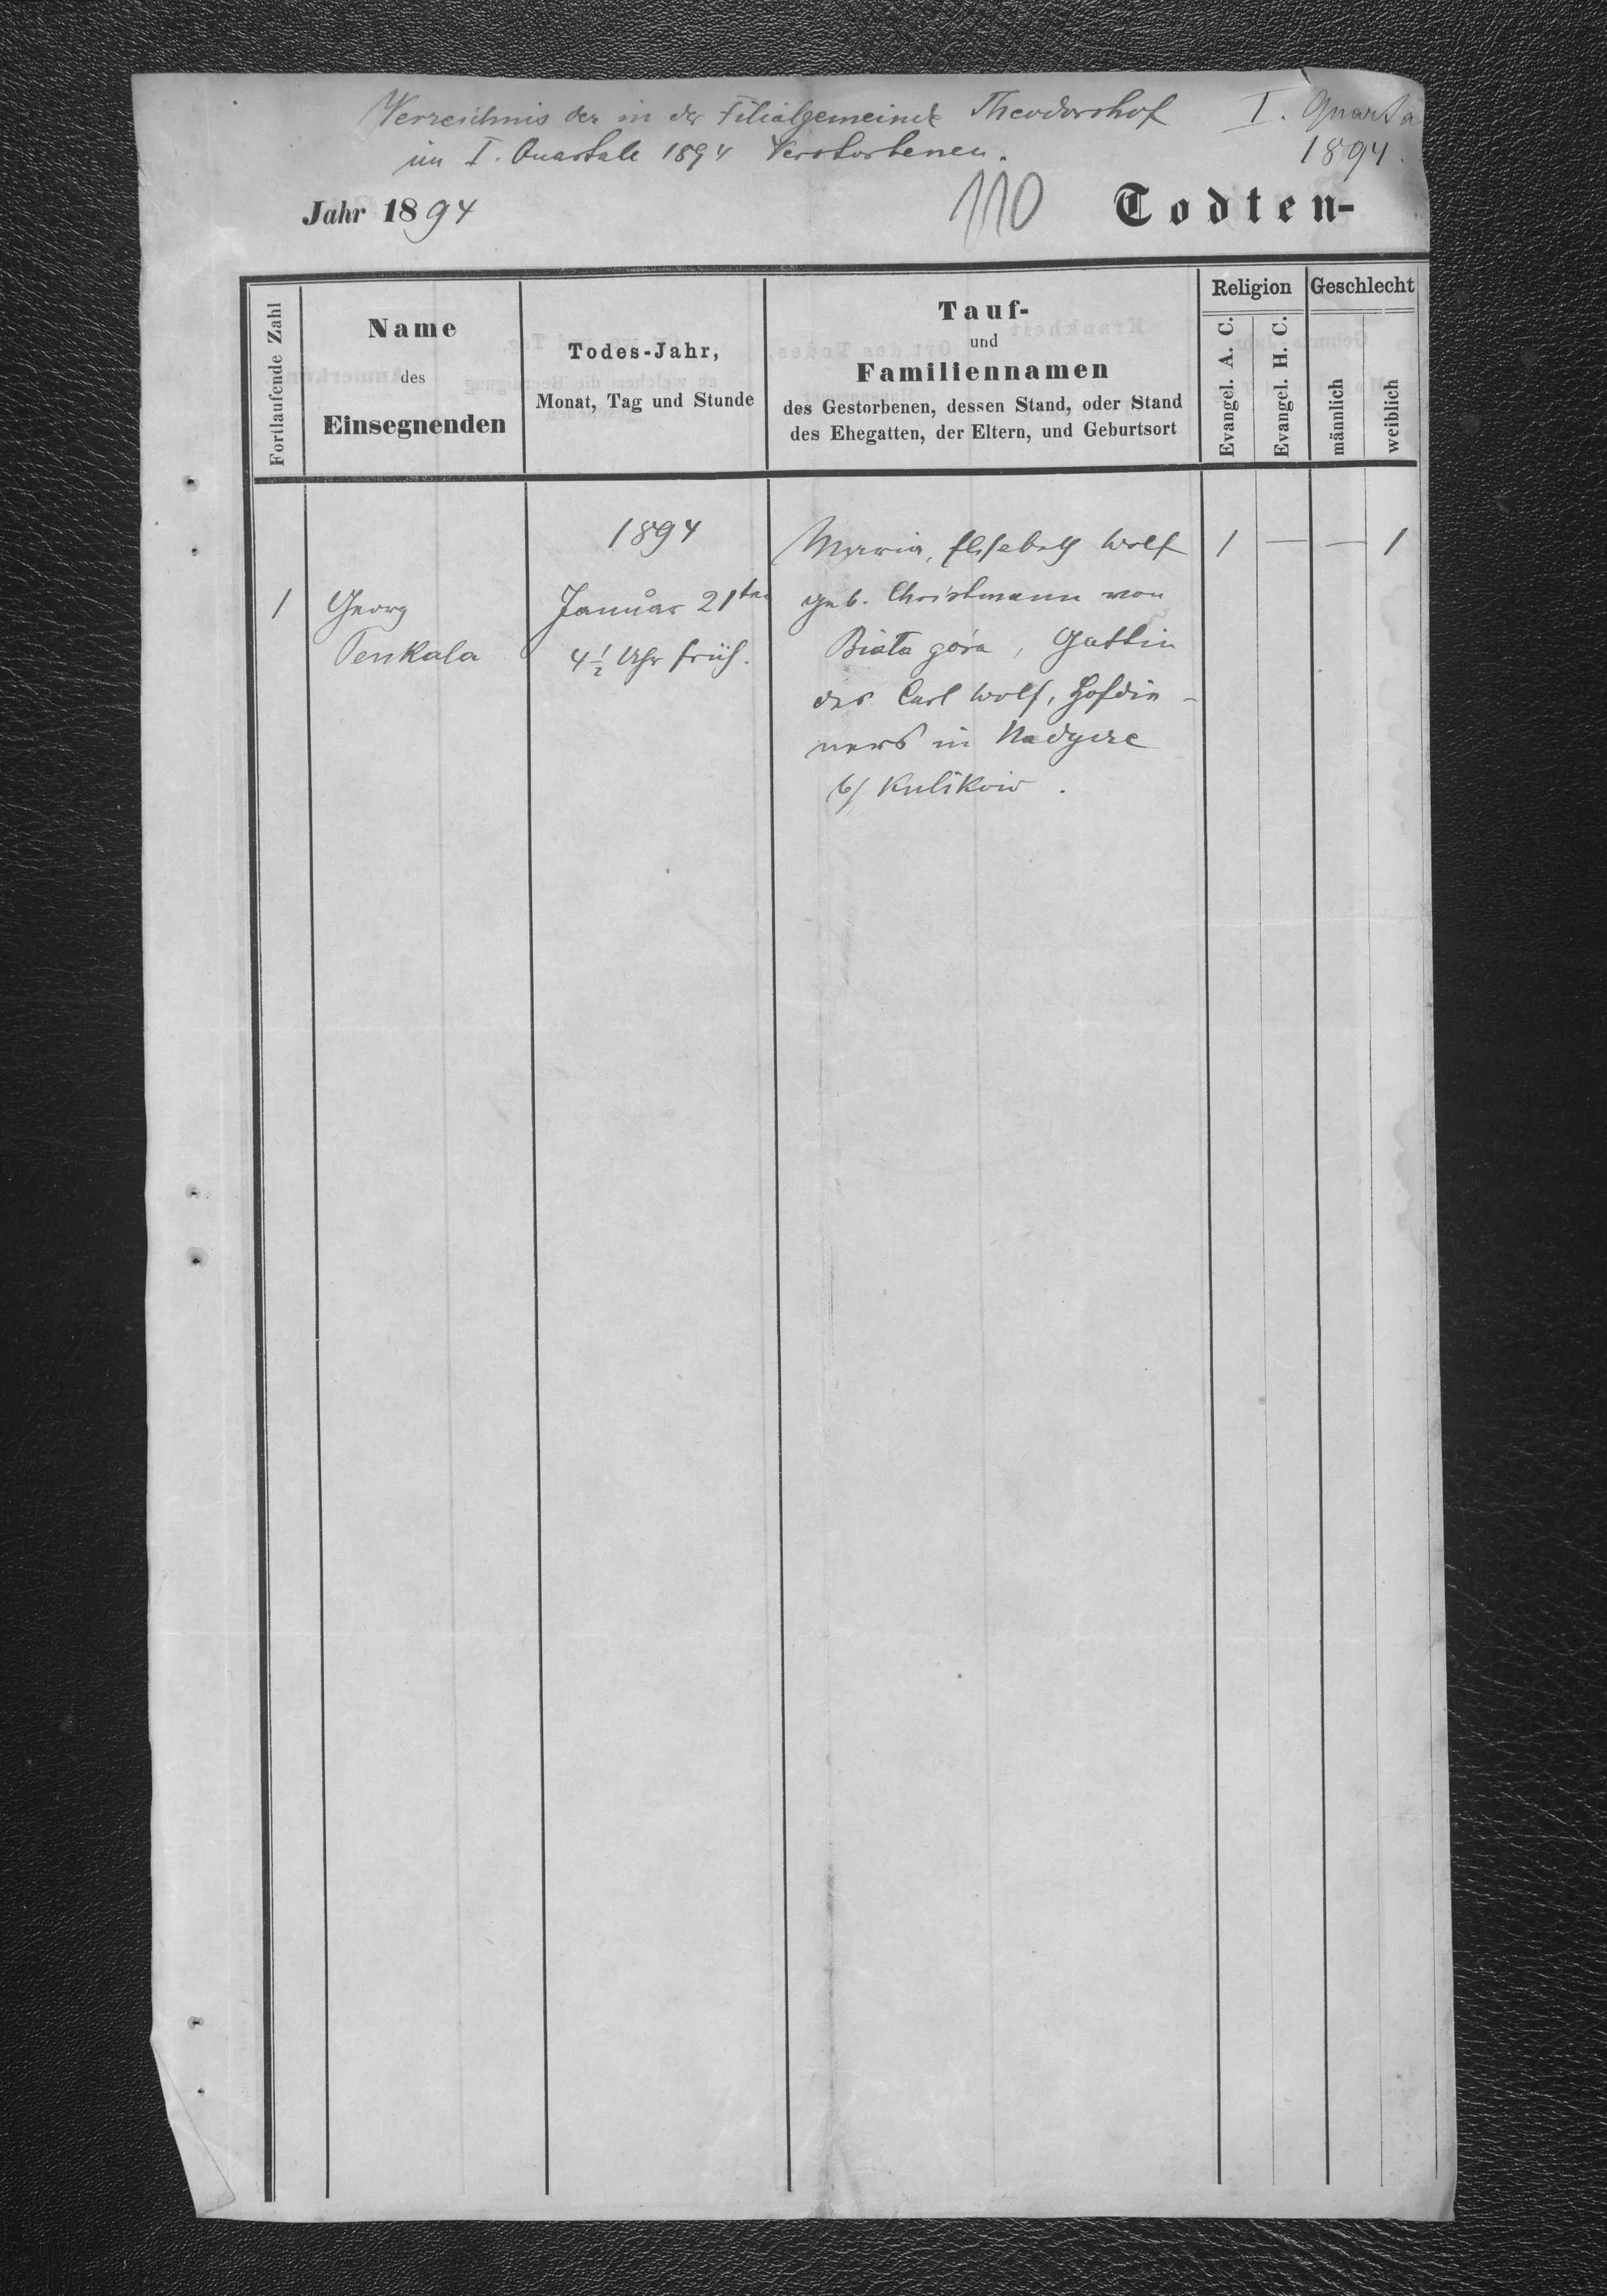 Verzeichnis der in der Filialgemeinde Theodorshof
im I. Quartale 1894 Verstorbenen.
I. Quarta
1894.
Jahr 1894
110
Todten-
Fortlaufende Zahl
Name
des
Einsegnenden
Todes-Jahr,
Monat, Tag und Stunde
Tauf-
und
Familiennamen
des Gestorbenen, dessen Stand, oder Stand
des Ehegatten, der Eltern, und Geburtsort
Religion
Evangel. A. C.
Evangel. H. C.
Geschlecht
männlich
weiblich
1
Georg
Penkala
1894
Januar 21ten
4 1/2 Uhr früh.
Maria, Elisabeth Wolf
geb. Christmann von
Biała góra, Gattin
des Carl Wolf, Hofdie-
ners in Nadycze
b/ Kulikow.
1 — — 1